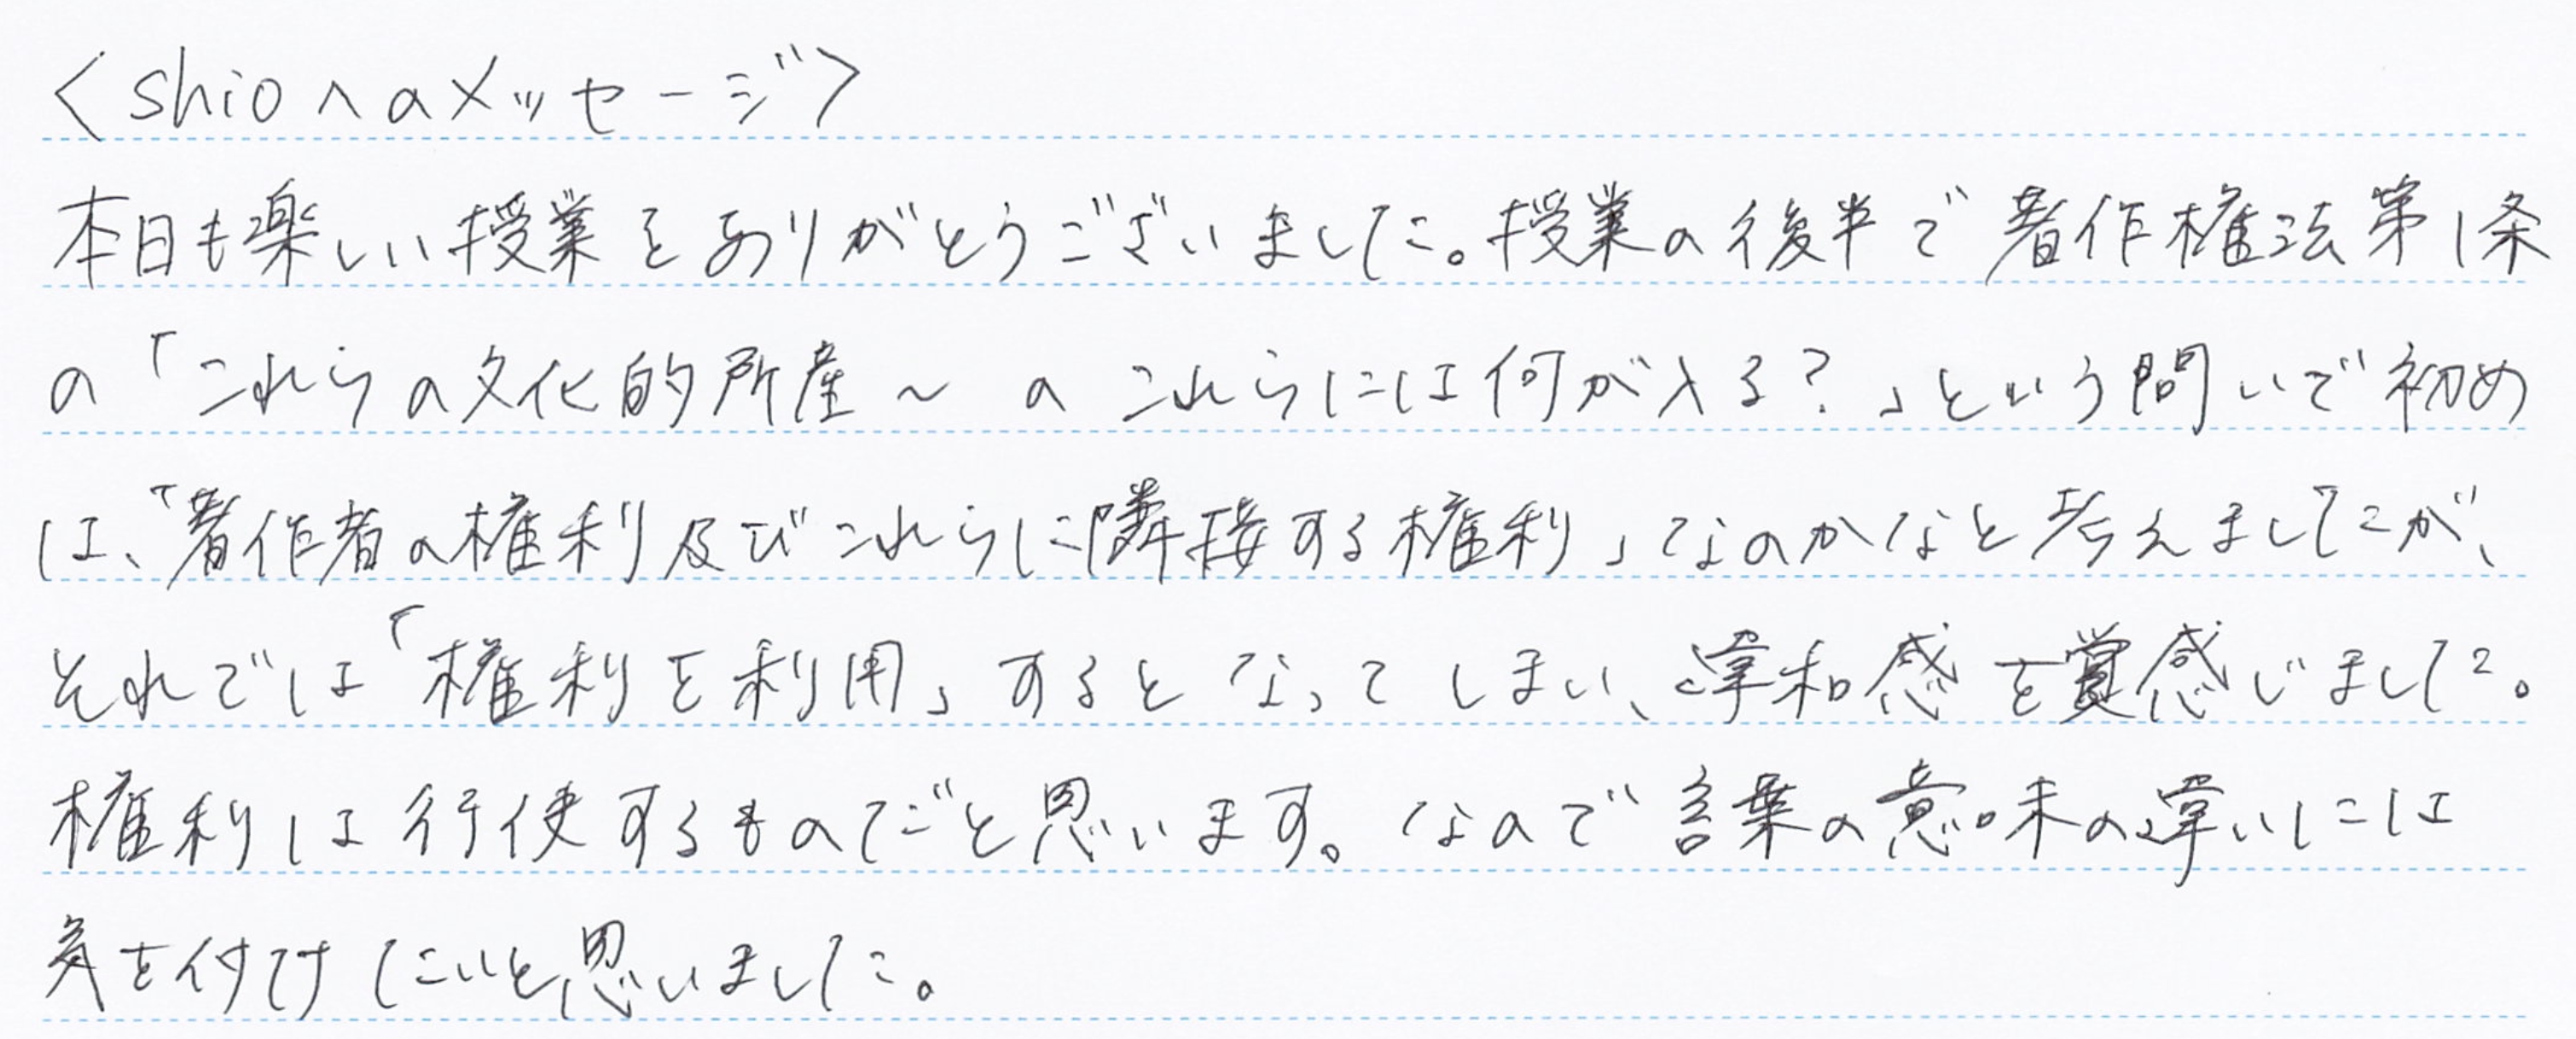 〈shioへのメッセージ〉
本日も楽しい授業をありがとうございました。授業の後半で著作権法第1条
の「これらの文化的所産〜のこれらには何が入る?」という問いで初め
は、「著作者の権利及びこれらに隣接する権利」なのかなと考えましたが、
それでは「権利を利用」するとなってしまい、違和感を感じました。
権利は行使するものだと思います。なので言葉の意味の違いには
気を付けたいと思いました。